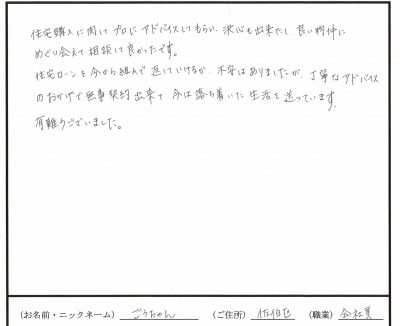 住宅購入に関して プロに アドバイスしてもらい、決心も出来たし、良い物件に
めぐり会えて 相談して 良かったです。
住宅ローンを 今から 組んで 返していけるか、不安はありましたが、丁寧なアドバイス
のおかげで 無事 契約 出来て 今は 落ち着いた 生活を 送っています。
有難うございました。
(お名前・ニックネーム) ごうちゃん (ご住所) 佐伯区 (職業) 会社員